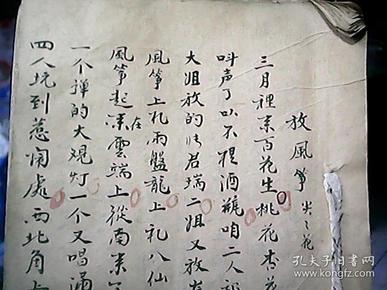 放風箏 尖尖花
三月裡來百花生桃花杏花
叫声丫环不提酒瓶咱二人
大姐放的張君瑞二姐又放
風箏上扎兩盤龍上扎八仙
風箏起在雲端上從南来
一个弹的大观灯一个又唱
四人玩到熱闹處西北角上
孔夫子旧书网